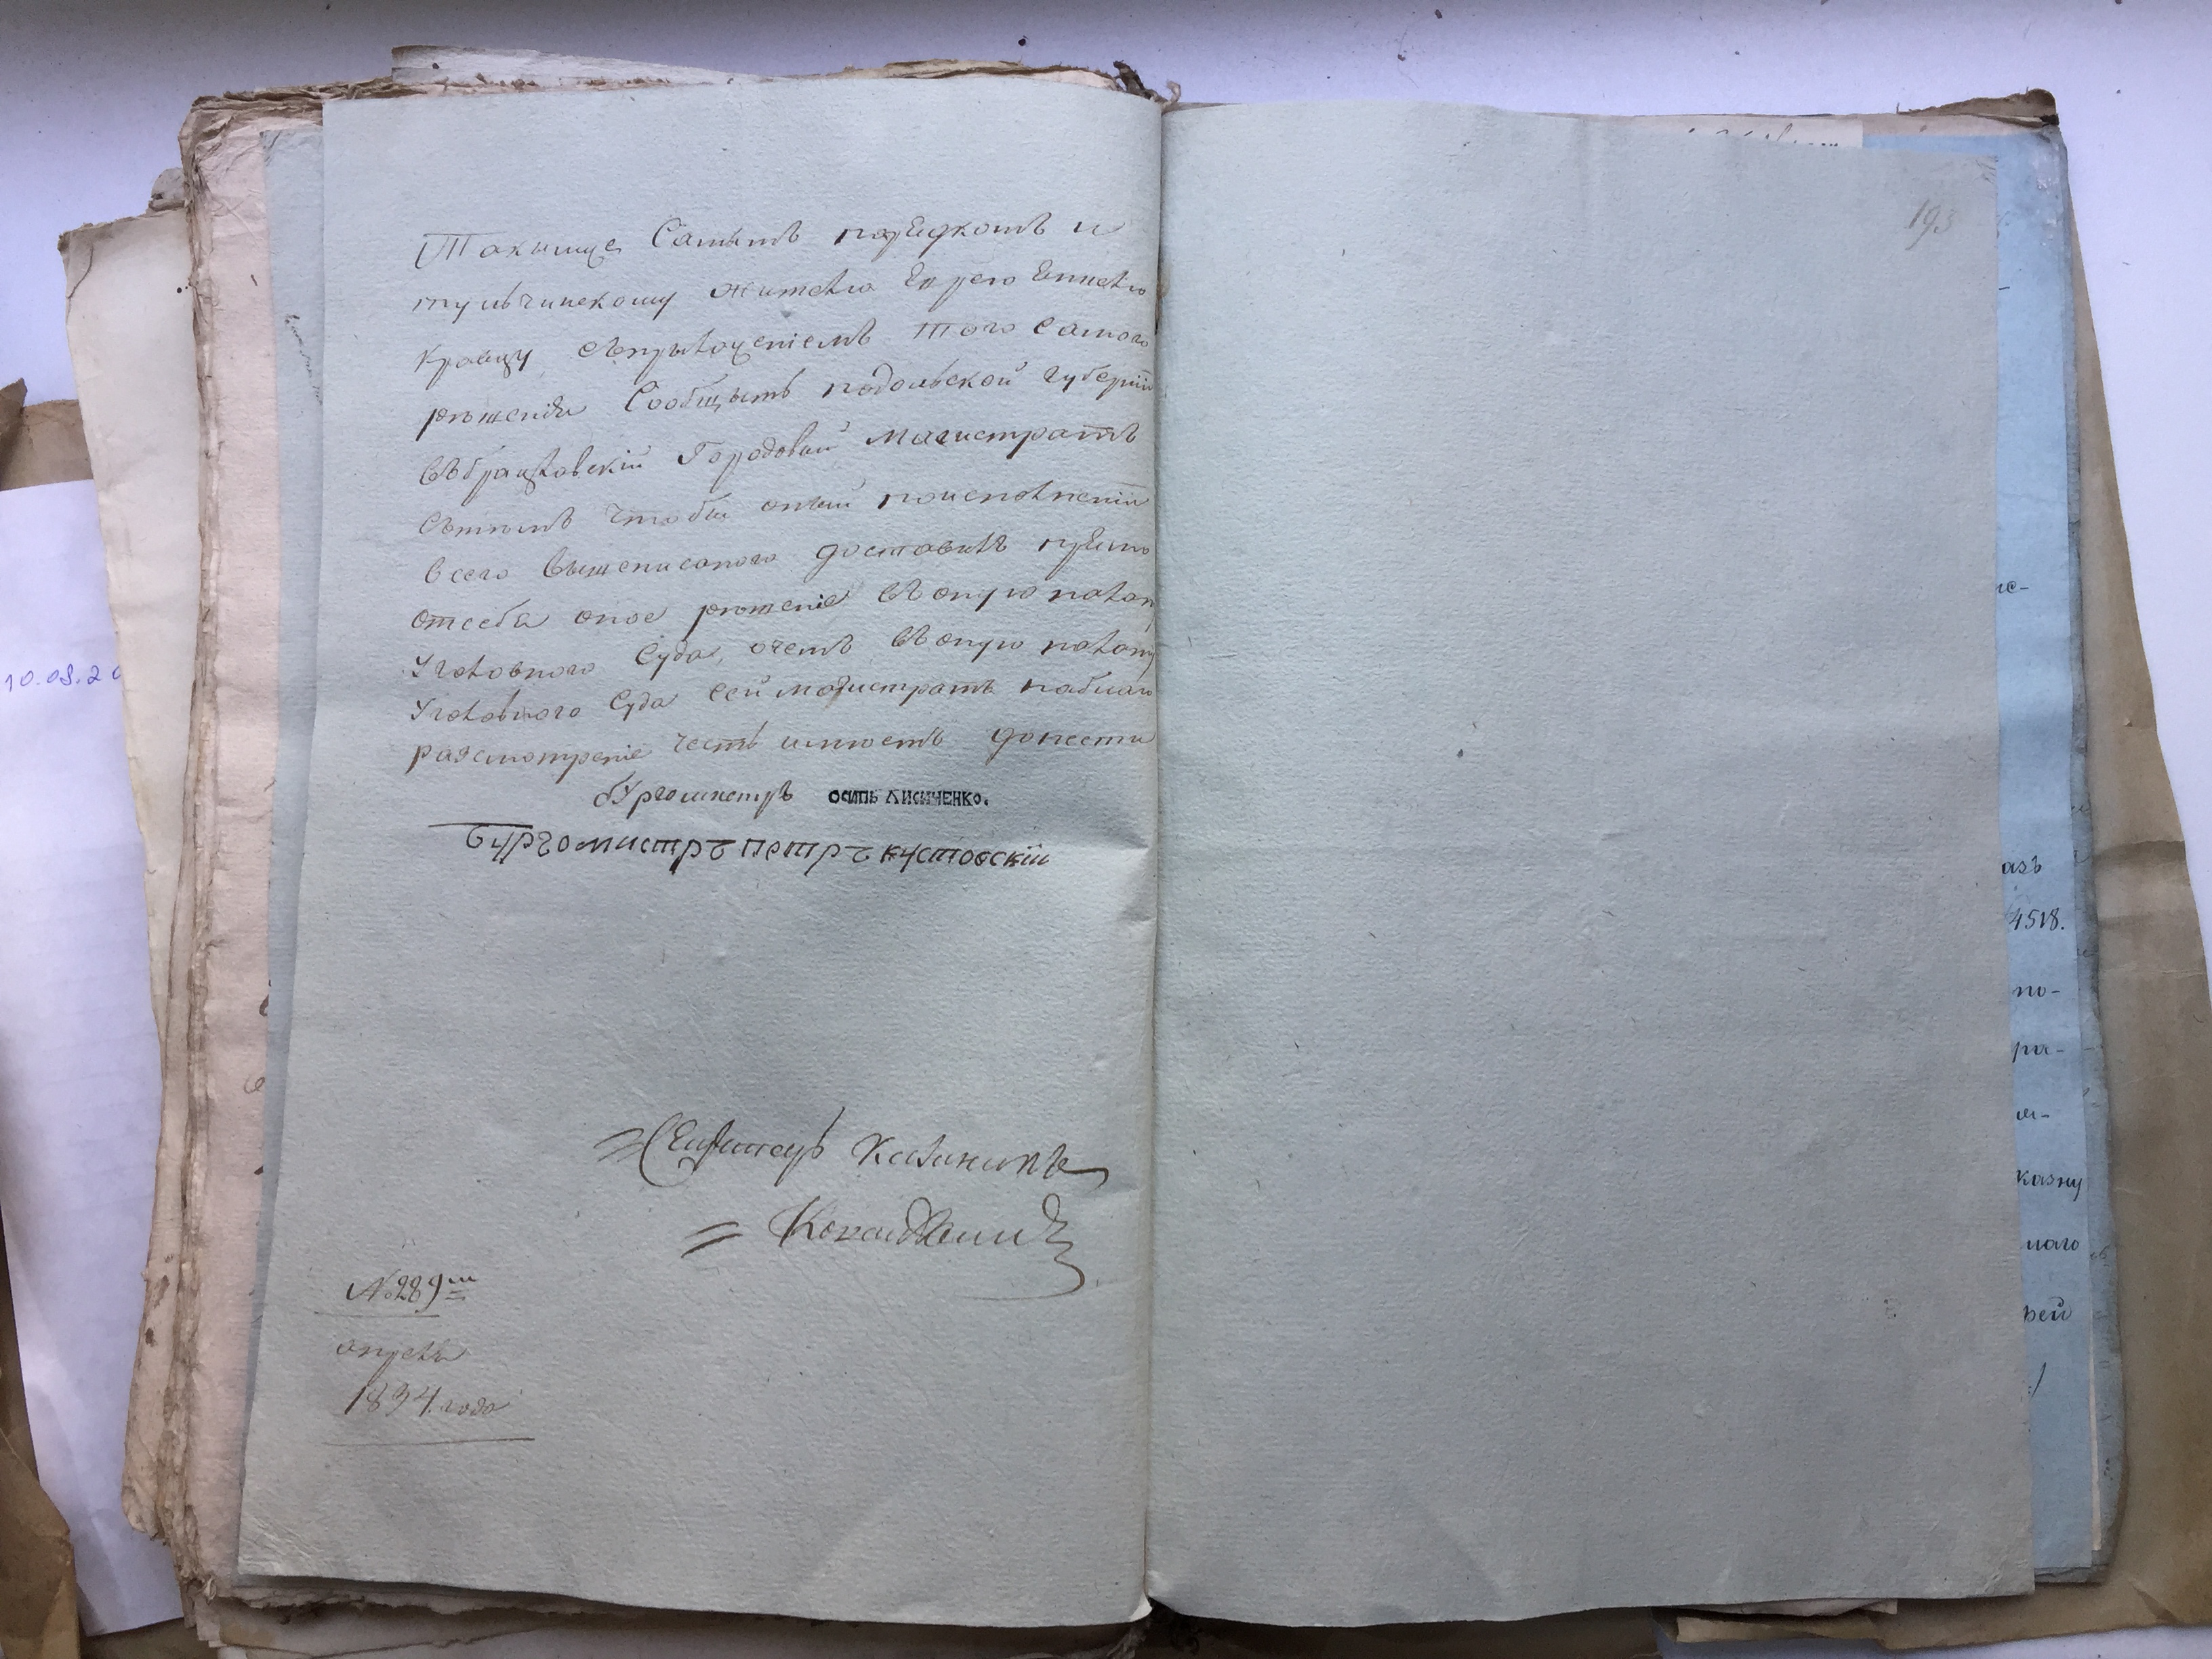 Такымже Самымъ порядкомъ и
тульчинскому жителю Еврею
Кравцу съпрыложеніемъ того самого
рѣшенія Сообщыть подольской губерніи
въбрацловскій Городовый магистратъ
сътѣмъ чтобы оный поисполненіи
всего вышеписаного доставилъ прямо
отсебя оное рѣшеніе въоную палату
Уголовного Суда, очемъ въоную палату
Уголовного Суда сей магистратъ наблаго
разсмотреніе честь имѣетъ донести
бургомистръ ОСИПЪ ЛИСИЧЕНКО.
Бургомистръ петръ кустовскій
№ 289
апреля
1834 года
193
азъ
4518.
по-
ра-
казну
наго
10.03.2